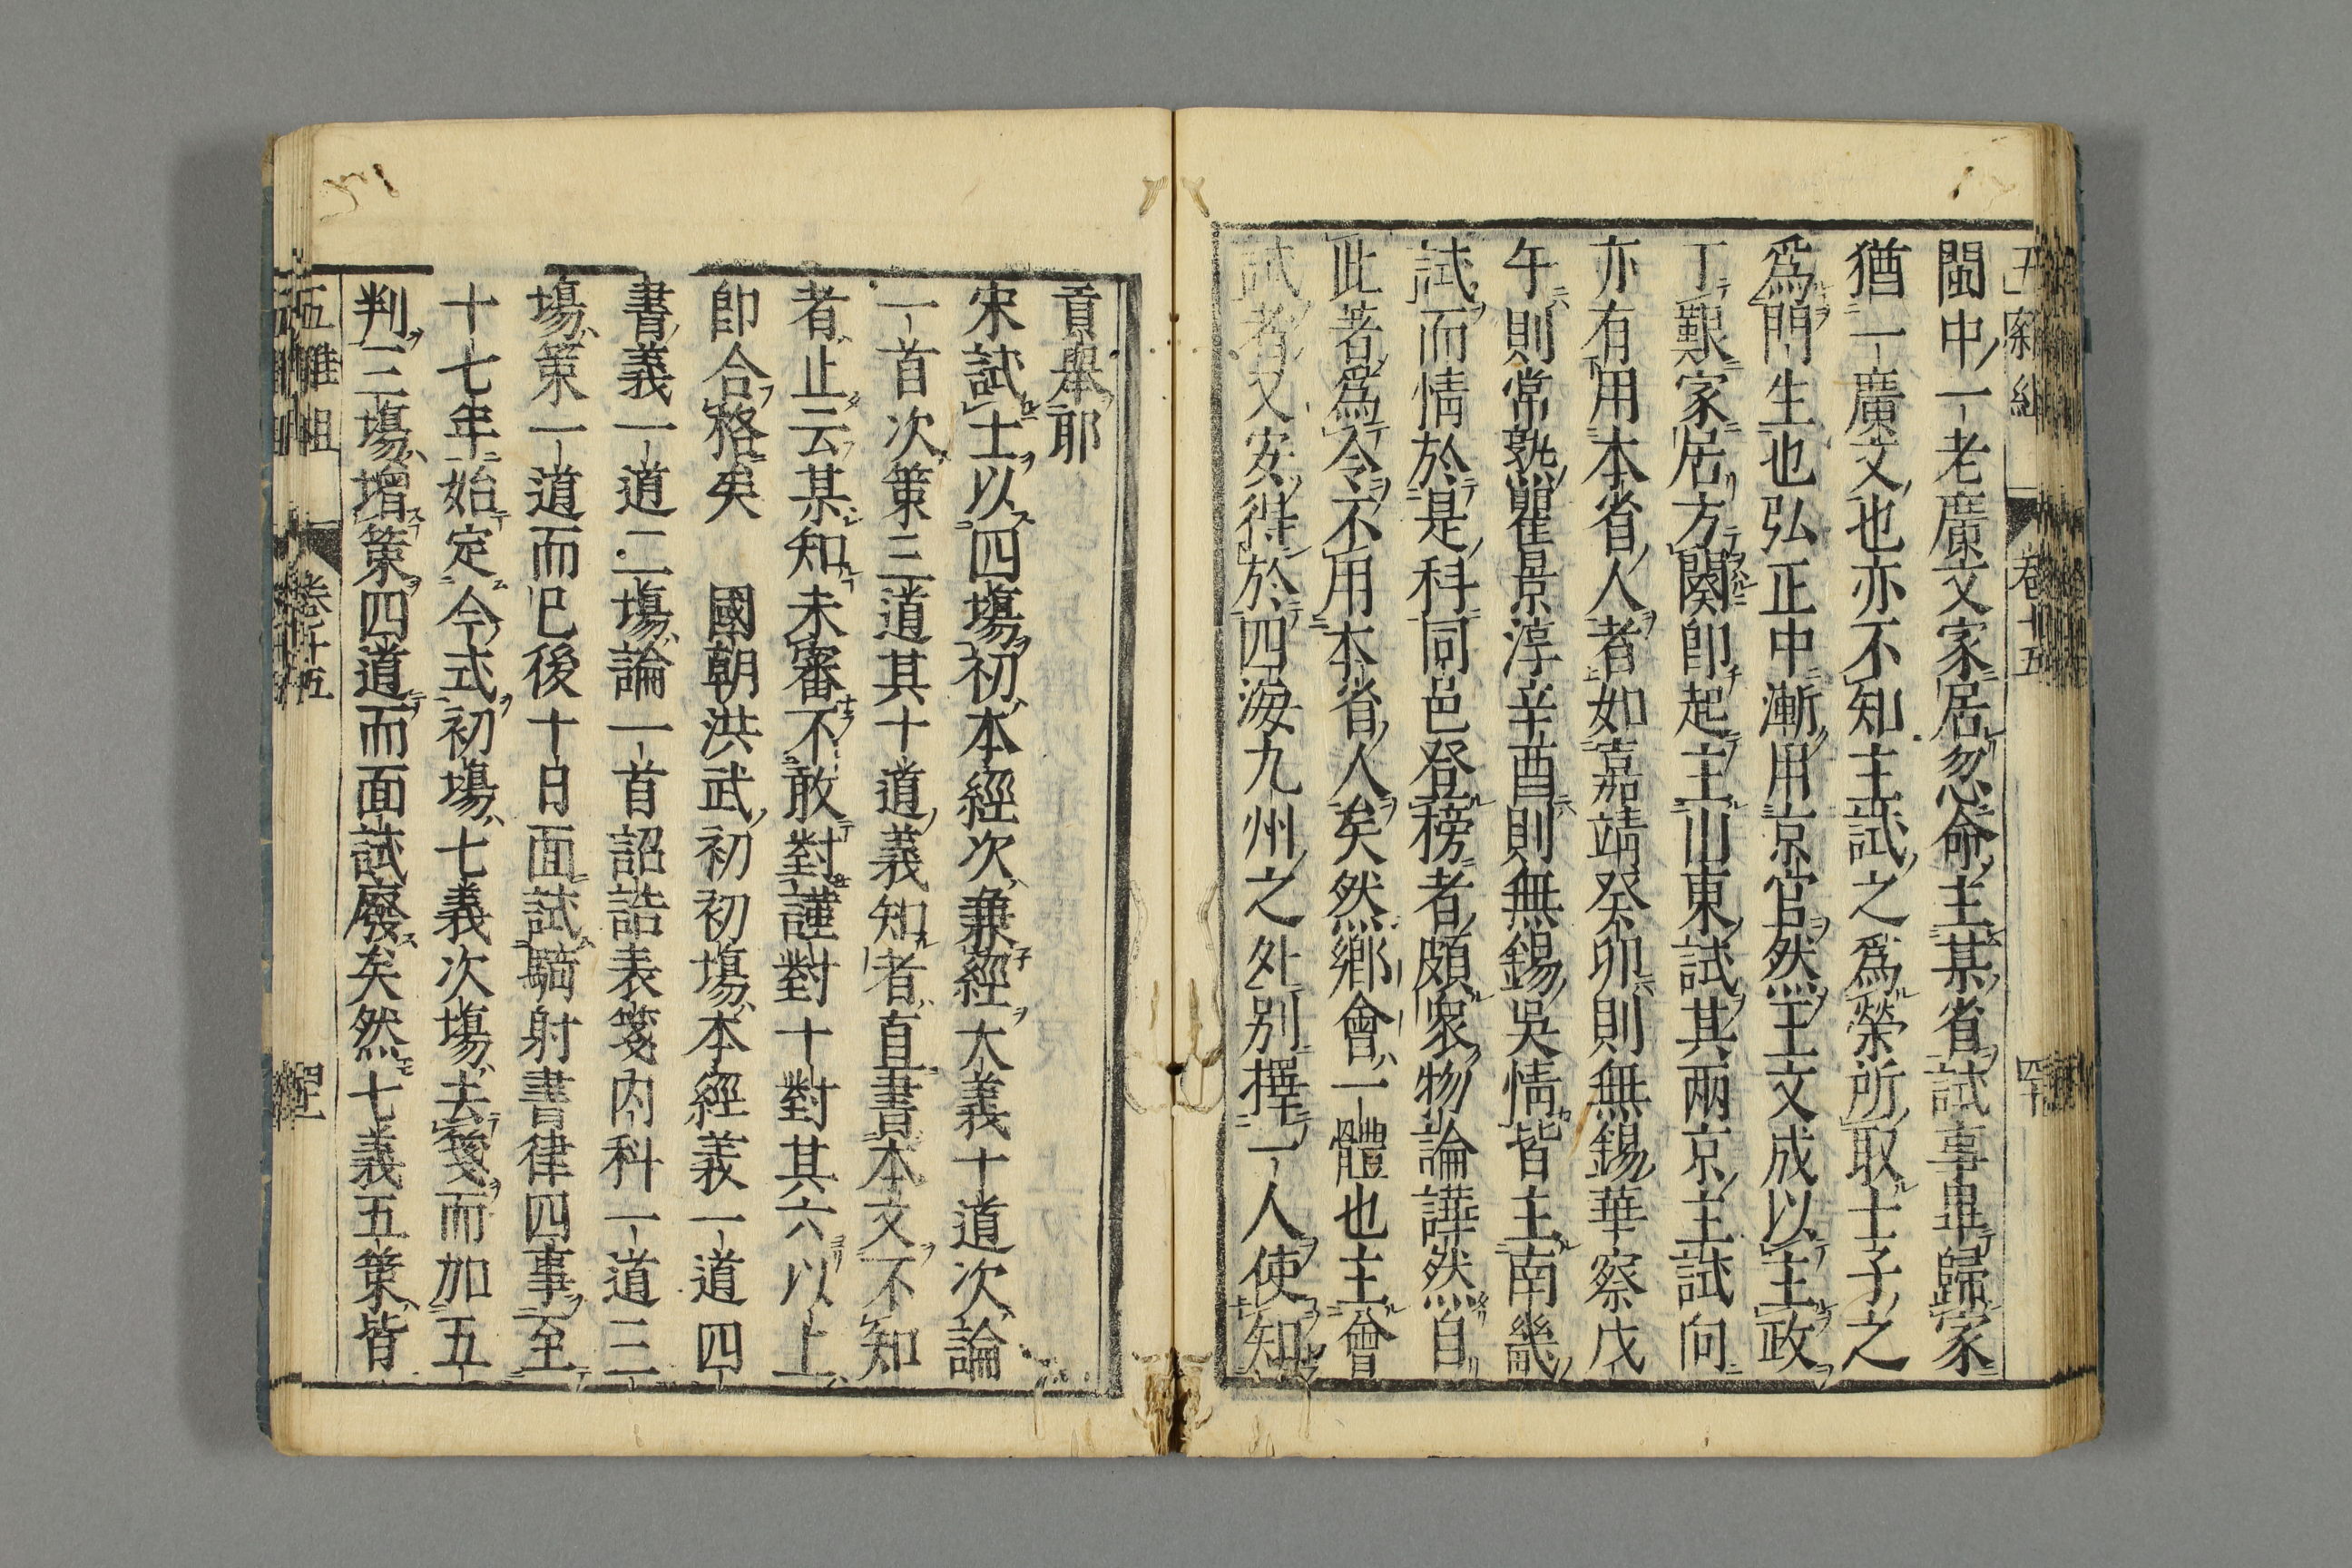 閩中一老廣文家居忽命主某省試事畢歸家
猶一廣文也亦不知主試之爲榮所取士子之
爲門生也弘正中漸用京官然王文成以主政
丁艱家居方闋卽起主山東試其兩京主試向
亦有用本省人者如嘉靖癸卯則無錫華察戊
午則常熟瞿景淳辛酉則無錫吳情皆主南畿
試而情於是科同邑登榜者頗衆物論譁然自
此著爲令不用本省人矣然鄉會一體也主會
試者又安徃於四海九州之外別擇一人使知
貢舉耶
宋試士以四塲初本經次兼經大義十道次論
一首次策三道其十道義知者直書本文不知
者止云某知未審不敢對謹對十對其六以上
卽合格矣　國朝洪武初初塲本經義一道四
書義一道二塲論一首詔誥表箋內科一道三
塲策一道而已後十日面試騎射書律四事至
十七年始定今式初塲七義次塲去箋而加五
判三塲增策四道而面試廢矣然七義五策皆
五雜組　卷十五